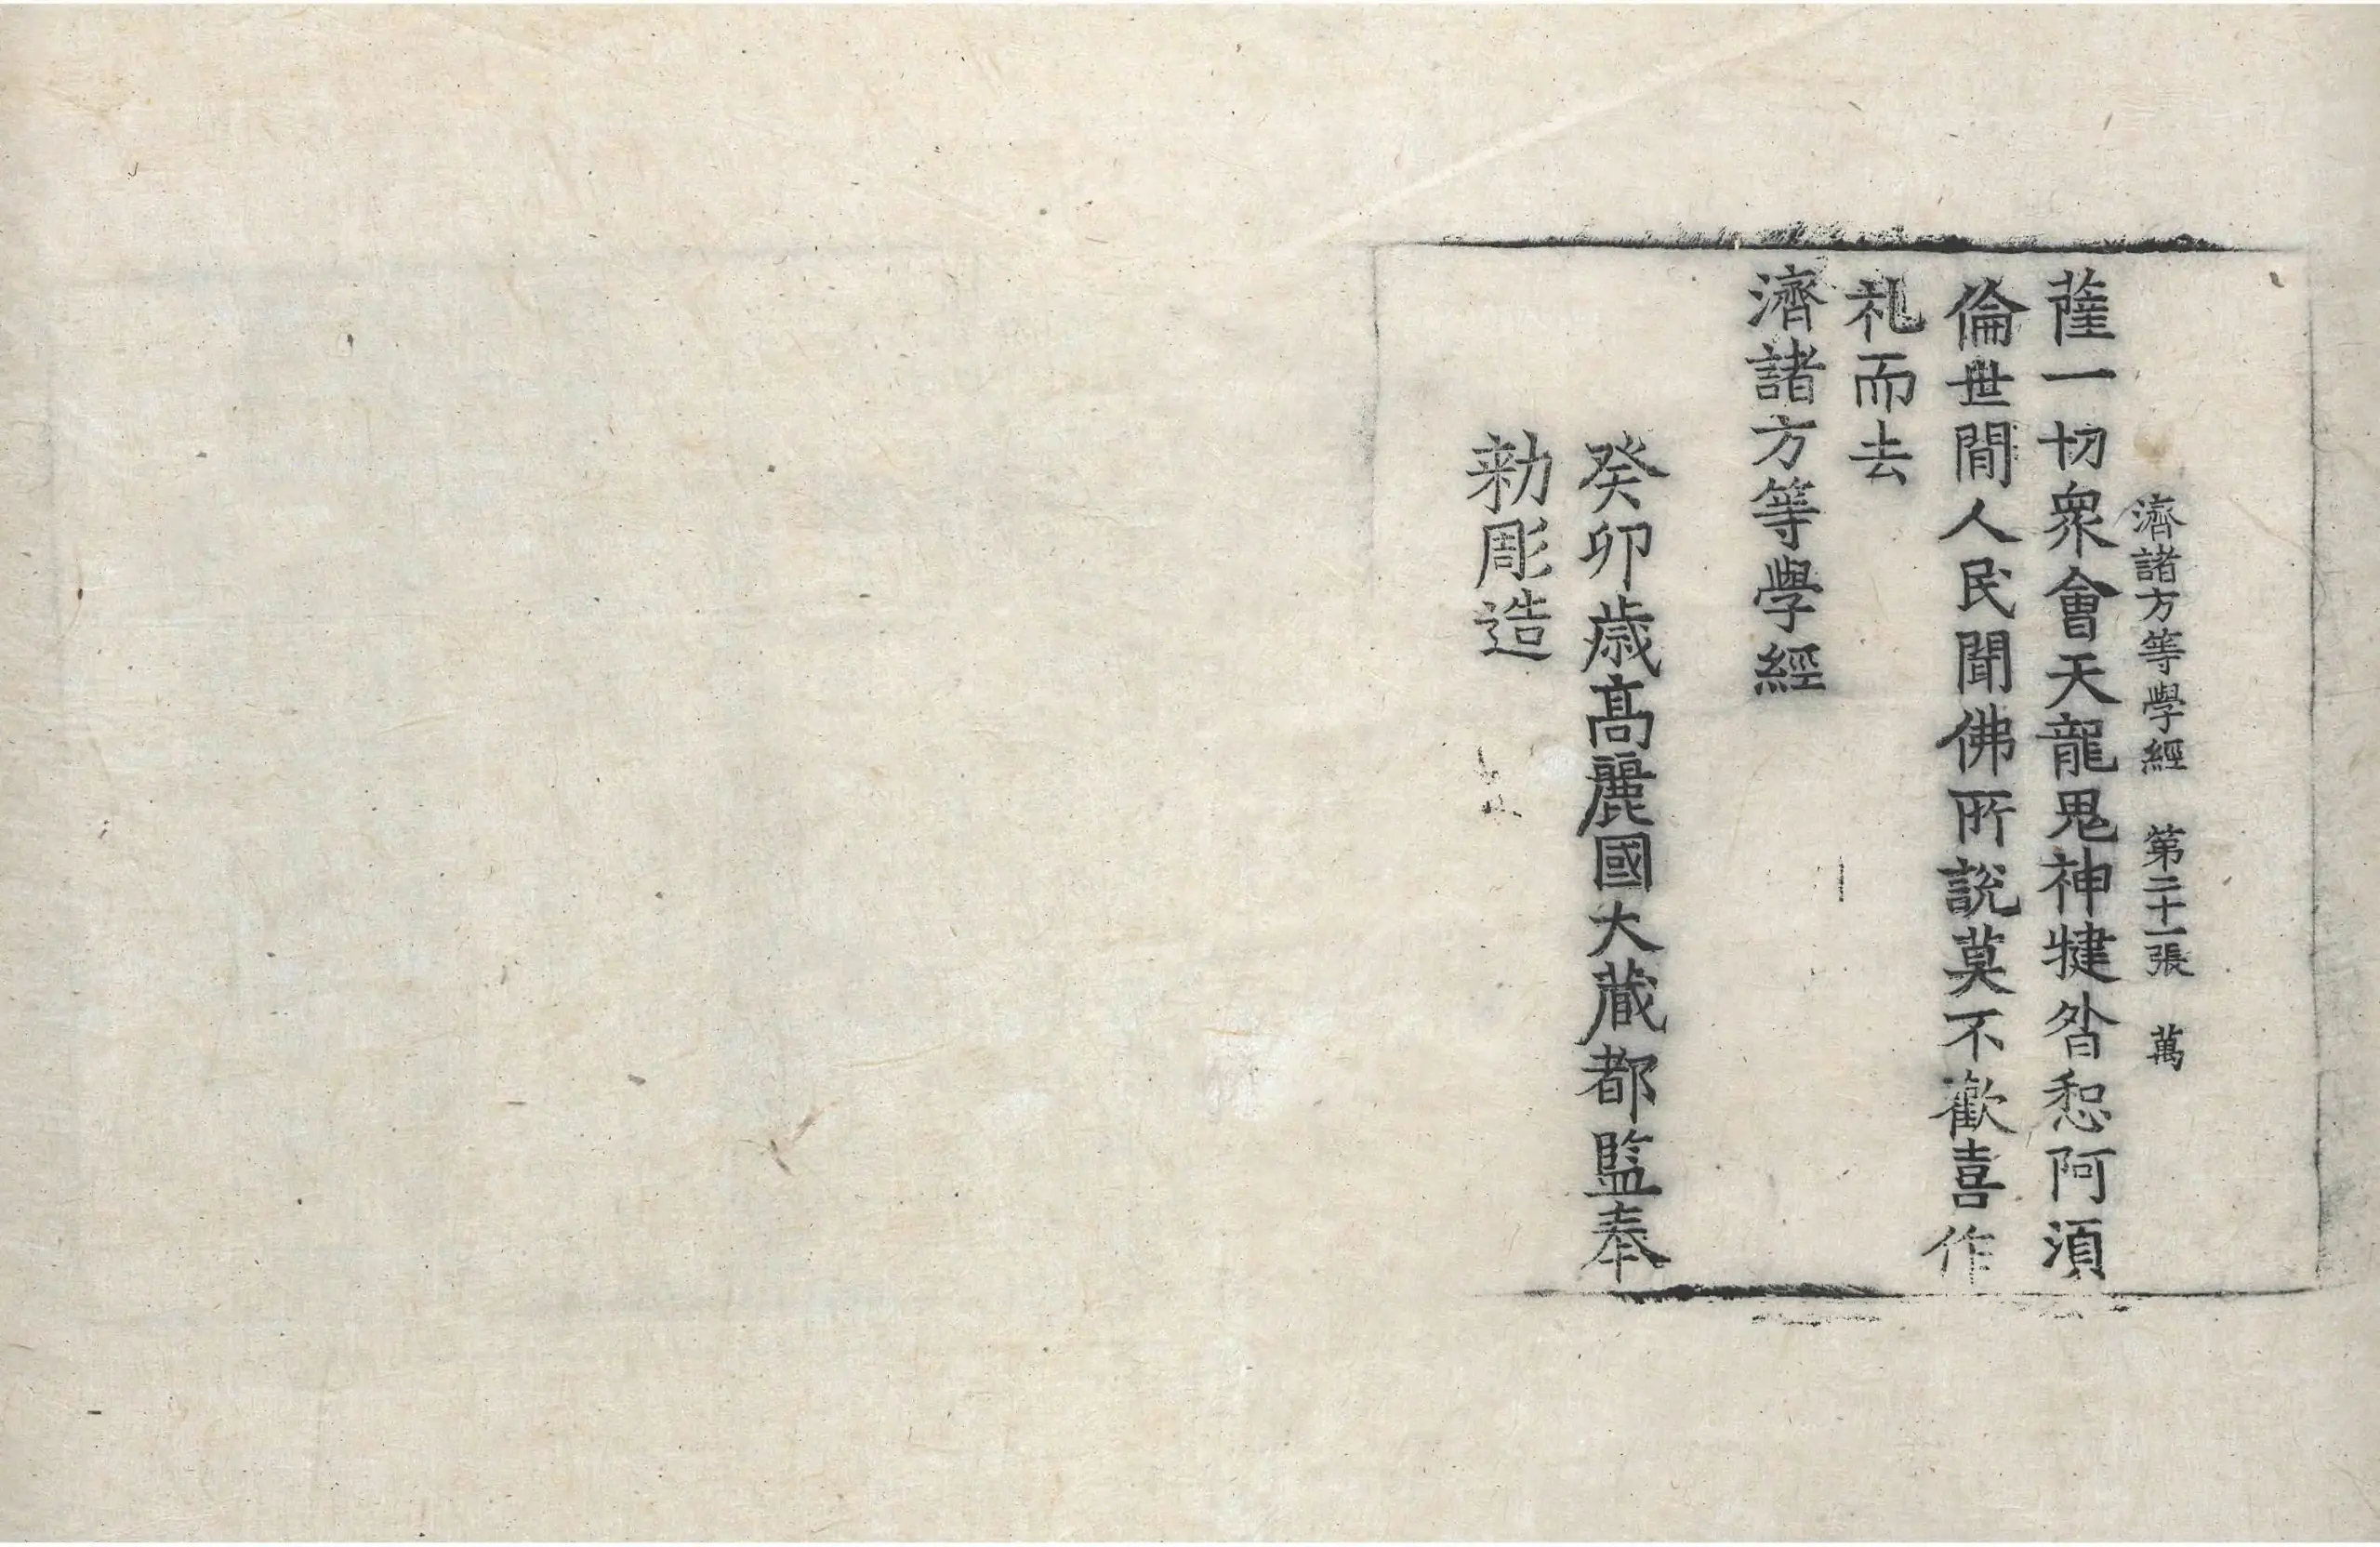 濟諸方等學經 第二十一張 萬
薩一切衆會天龍鬼神揵沓惒阿湏
倫世閒人民聞佛所說莫不歡喜作
礼而去
濟諸方等學經
癸卯歲高麗國大藏都監奉
勑彫造